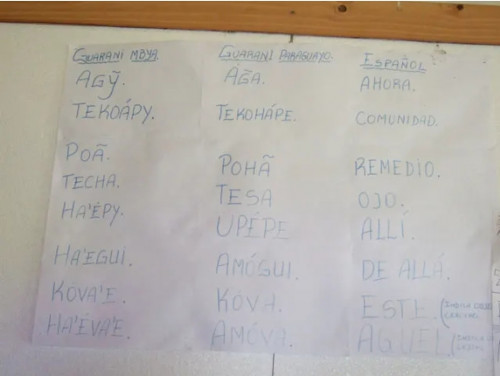 GUARANI MBYA. GUARANI PARAGUAYO. ESPAÑOL.
AGỸ. ÃG̃A. AHORA.
TEKOÁPY. TEKOHÁPE. COMUNIDAD.
POÃ. POHÃ REMEDIO.
TECHA. TESA OJO.
HA'ÉPY. UPÉPE ALLÍ.
HA'EGUI. AMÓGUI. DE ALLÁ.
KOVA'E. KÓVA. ESTE.
HA'ÉVA'E. AMÓVA. AQUEL